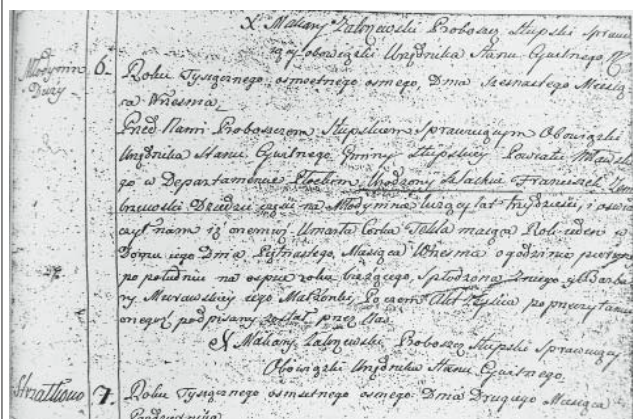 X Makary Zalewski Proboszcz Słupski Sprawu
iący obowiązki Urzędnika Stanu Cywilnego
Młodynin
Duży
6. Roku Tysiącznego osmsetnego osmego, Dnia Szesnastego Miesią
ca Września
Przed Nami Proboszczem Słupskiem Sprawuiącym Obowiązki
Urzędnika Stanu Cywilnego Gminy Słupskiey Powiatu Mławskie
go w Departamencie Płockim, Urodzony Szlachc Franciszek
Dziedzic części na Młodyminie liczący lat trzydzieści, i oświad
czył nam iż onemuż Umarła Corka Tekla maiąca Rok ieden w
Domu iego Dnia Piętnastego, Miesiąca Września o godzinie pierwszy
po południu na ospie roku bieżącego, Spłodzona z niego y Barba
ry Murawskiey iego Małżonki, Poczem Akt Zeyścia po przeczytaniu
onegoż podpisany został przez Nas
X Makary Zalewski Proboszcz Słupski Sprawuiący
Obowiązki Urzędnika Stanu Cywilnego
Strzałkowo
7. Roku Tysiącznego osmsetnego osmego Dnia Drugiego Miesiąca
Października